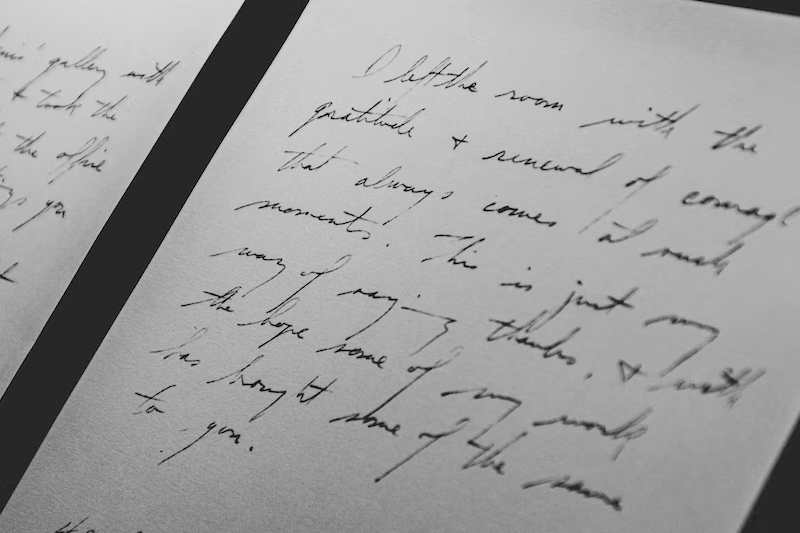 gallery with
& took the
the office
you
I left the room with the
gratitude & renewal of courage
that always comes at such
moments. This is just my
way of saying thanks, & with
the hope some of my work
has brought some of the same
to you.